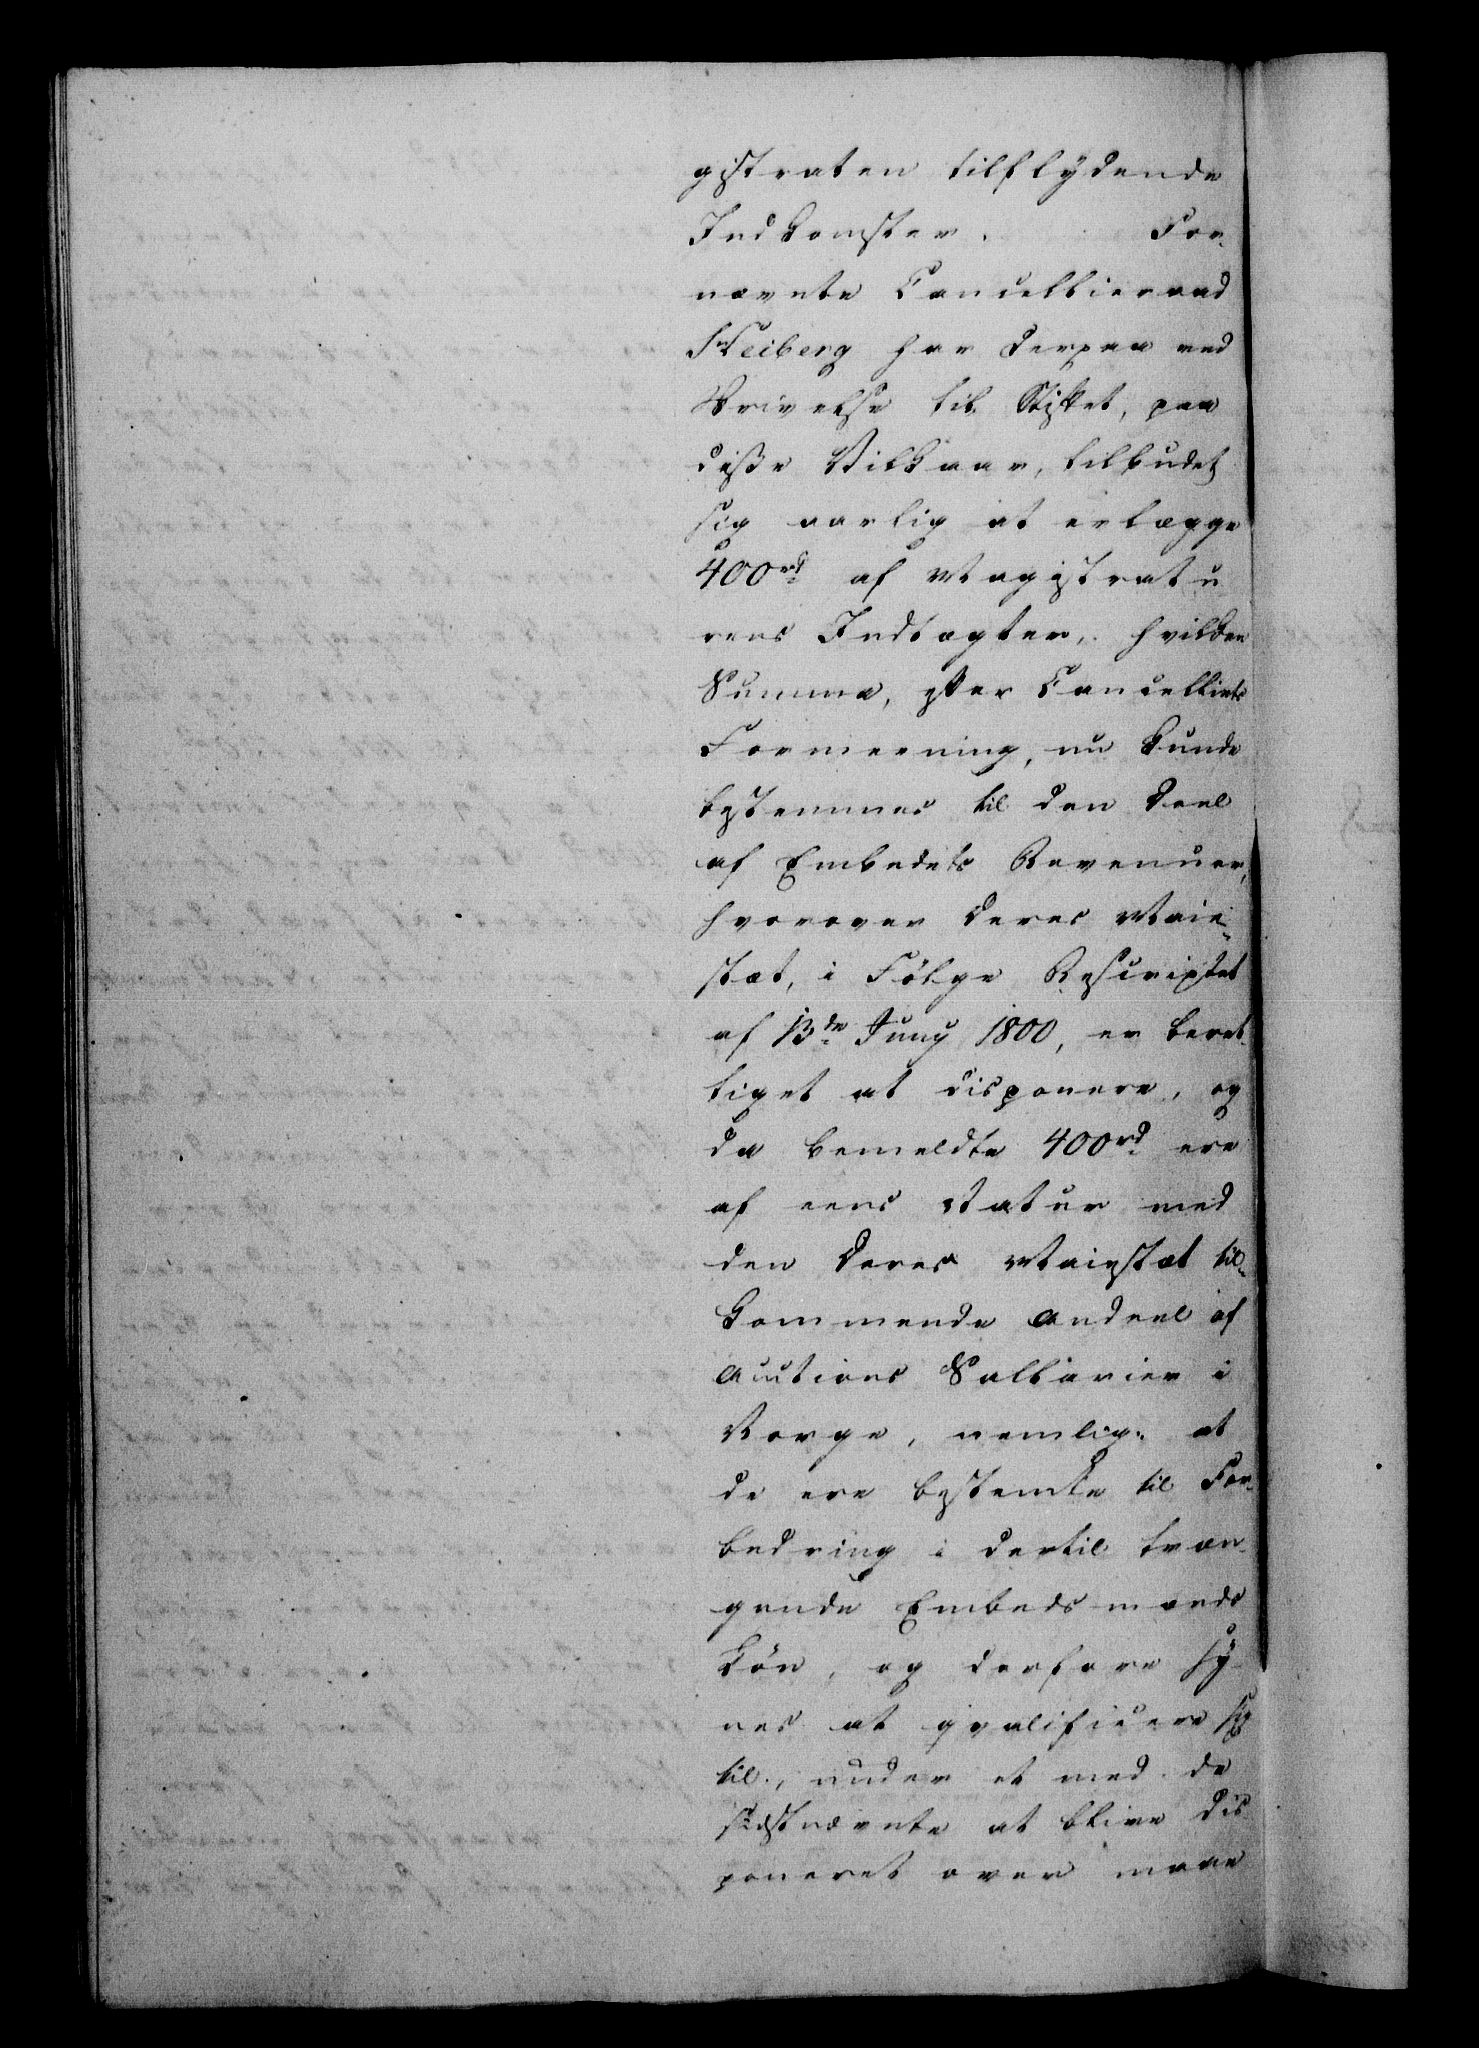 gistraten tilflydende
Indkomster. For-
nævnte Cancellieraad
Heiberg har derpaa ved
Skrivelse til Stiftet, paa
disse Vilkaar, tilbudet
sig aarlig at erlægge
400 rd af Magistratu
rens Indtægter, hvilken
Summa, efter Cancelliets
Formeening, nu kunde
bestemmes til den Deel
af Embedets Revenuer,
hvorover Deres Maje-
stæt, i Følge Rescriptet
af 13de Juny 1800, er beret-
tiget at disponere, og
da bemeldte 400 rd ere
af eens Natur med
den Deres Majestæt til-
kommende Andeel af
Auctions Sallarier i
Norge, nemlig: at
de ere bestemte til For-
bedring i dertil træn-
gende Embedsmænds
Kön, og derfore sy-
nes at qvalificere sig
til, under et med de
sidstnævnte at blive dis
poneret over maae